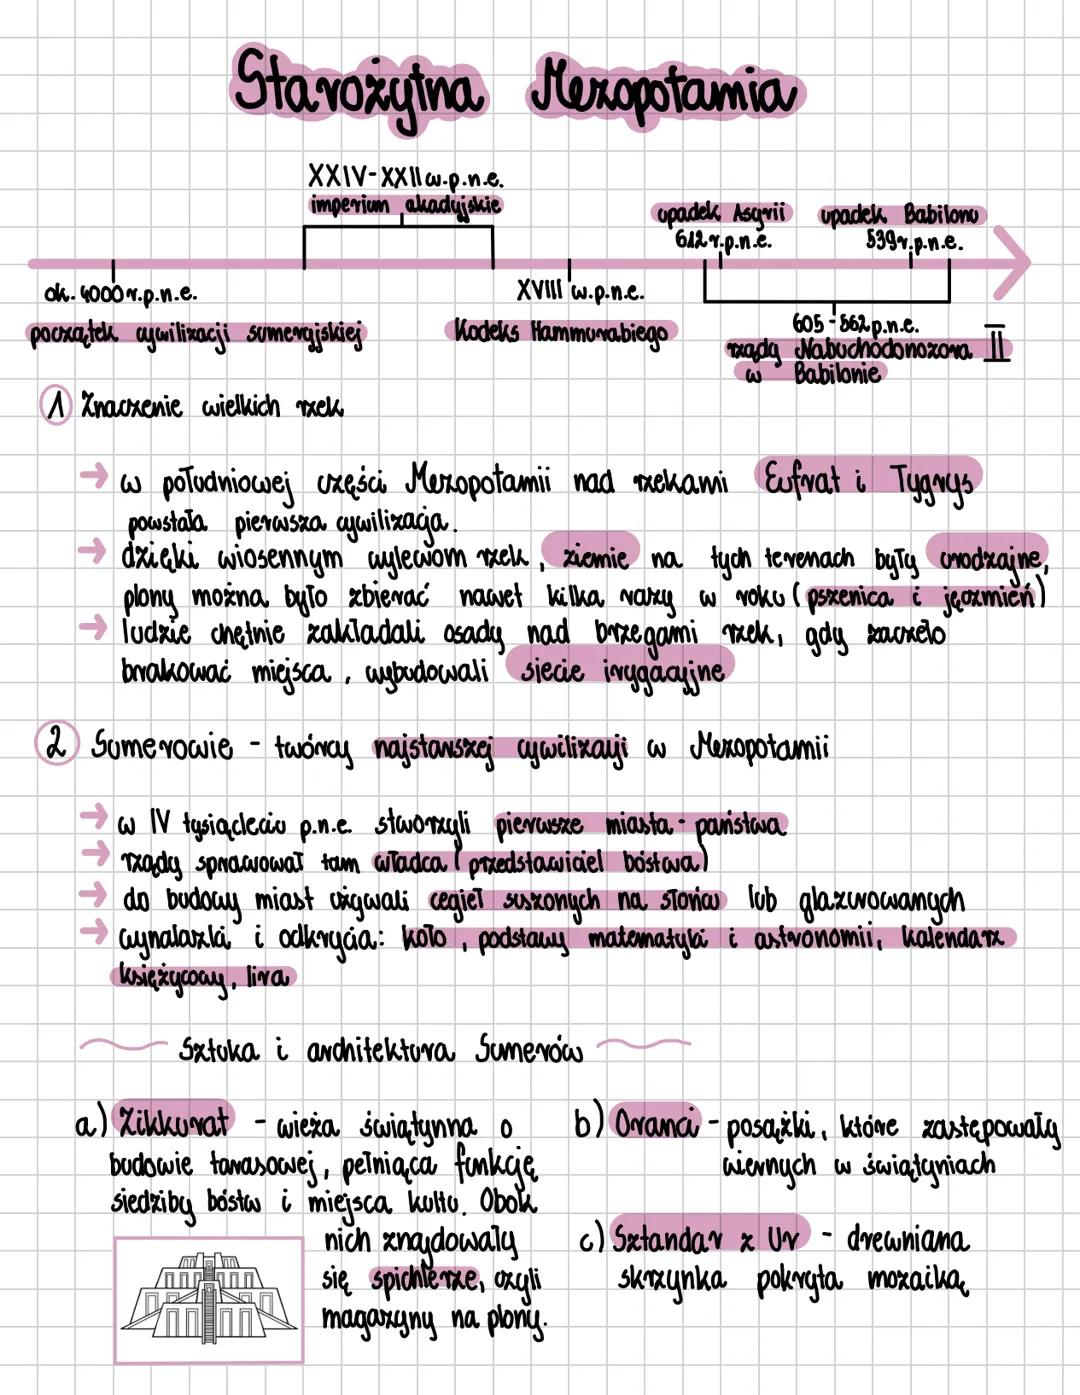 Starożytna Mezopotamia
XXIV-XXII w.p.n.e.
imperium akadyjskie
upadek Asyrii
612 r.p.n.e.
upadek Babilonu
539r.p.n.e.
ok. 4000 r.p.n.e.
początek cywilizacji sumeryjskiej
XVIII w.p.n.e.
Kodeks Hammurabiego
605-562 p.n.e.
rządy Nabuchodonozora II
w Babilonie
1 Znaczenie wielkich rzek
→ w południowej części Mezopotamii nad rzekami Eufrat i Tygrys
powstała pierwsza cywilizacja.
→ dzięki wiosennym wylewom rzek, ziemie na tych terenach były urodzajne,
plony można było zbierać nawet kilka razy w roku (pszenica i jęczmień)
→ ludzie chętnie zakładali osady nad brzegami rzek, gdy zaczęło
brakować miejsca, wybudowali siecie irygacyjne
2 Sumerowie - twórcy najstarszej cywilizacji w Mezopotamii
→ w IV tysiącleciu p.n.e. stworzyli pierwsze miasta-państwa
→ rządy sprawował tam władca (przedstawiciel bóstwa)
→ do budowy miast używali cegieł suszonych na słońcu lub glazurowanych
→ wynalazki i odkrycia: koło, podstawy matematyki i astronomii, kalendarz
księżycowy, lira
Sztuka i architektura Sumerów
a) Zikkurat - wieża świątynna o
budowie tarasowej, pełniąca funkcję
siedziby bóstw i miejsca kultu. Obok
nich znajdowały
się spichlerze, czyli
magazyny na plony.
b) Oranci - posążki, które zastępowały
wiernych w świątyniach
c) Sztandar z Ur - drewniana
skrzynka pokryta mozaiką